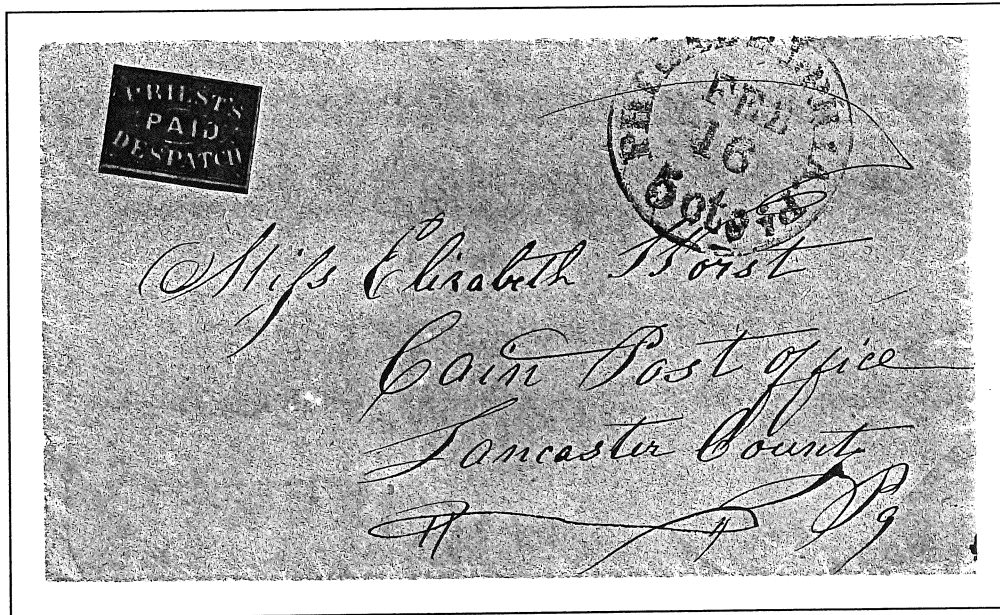 PRIEST'S
PAID
DESPATCH
PHILADELPHIA
FEB
16
5 cts
Miss Elizabeth Borst
Cain Post office
Lancaster County
Pa